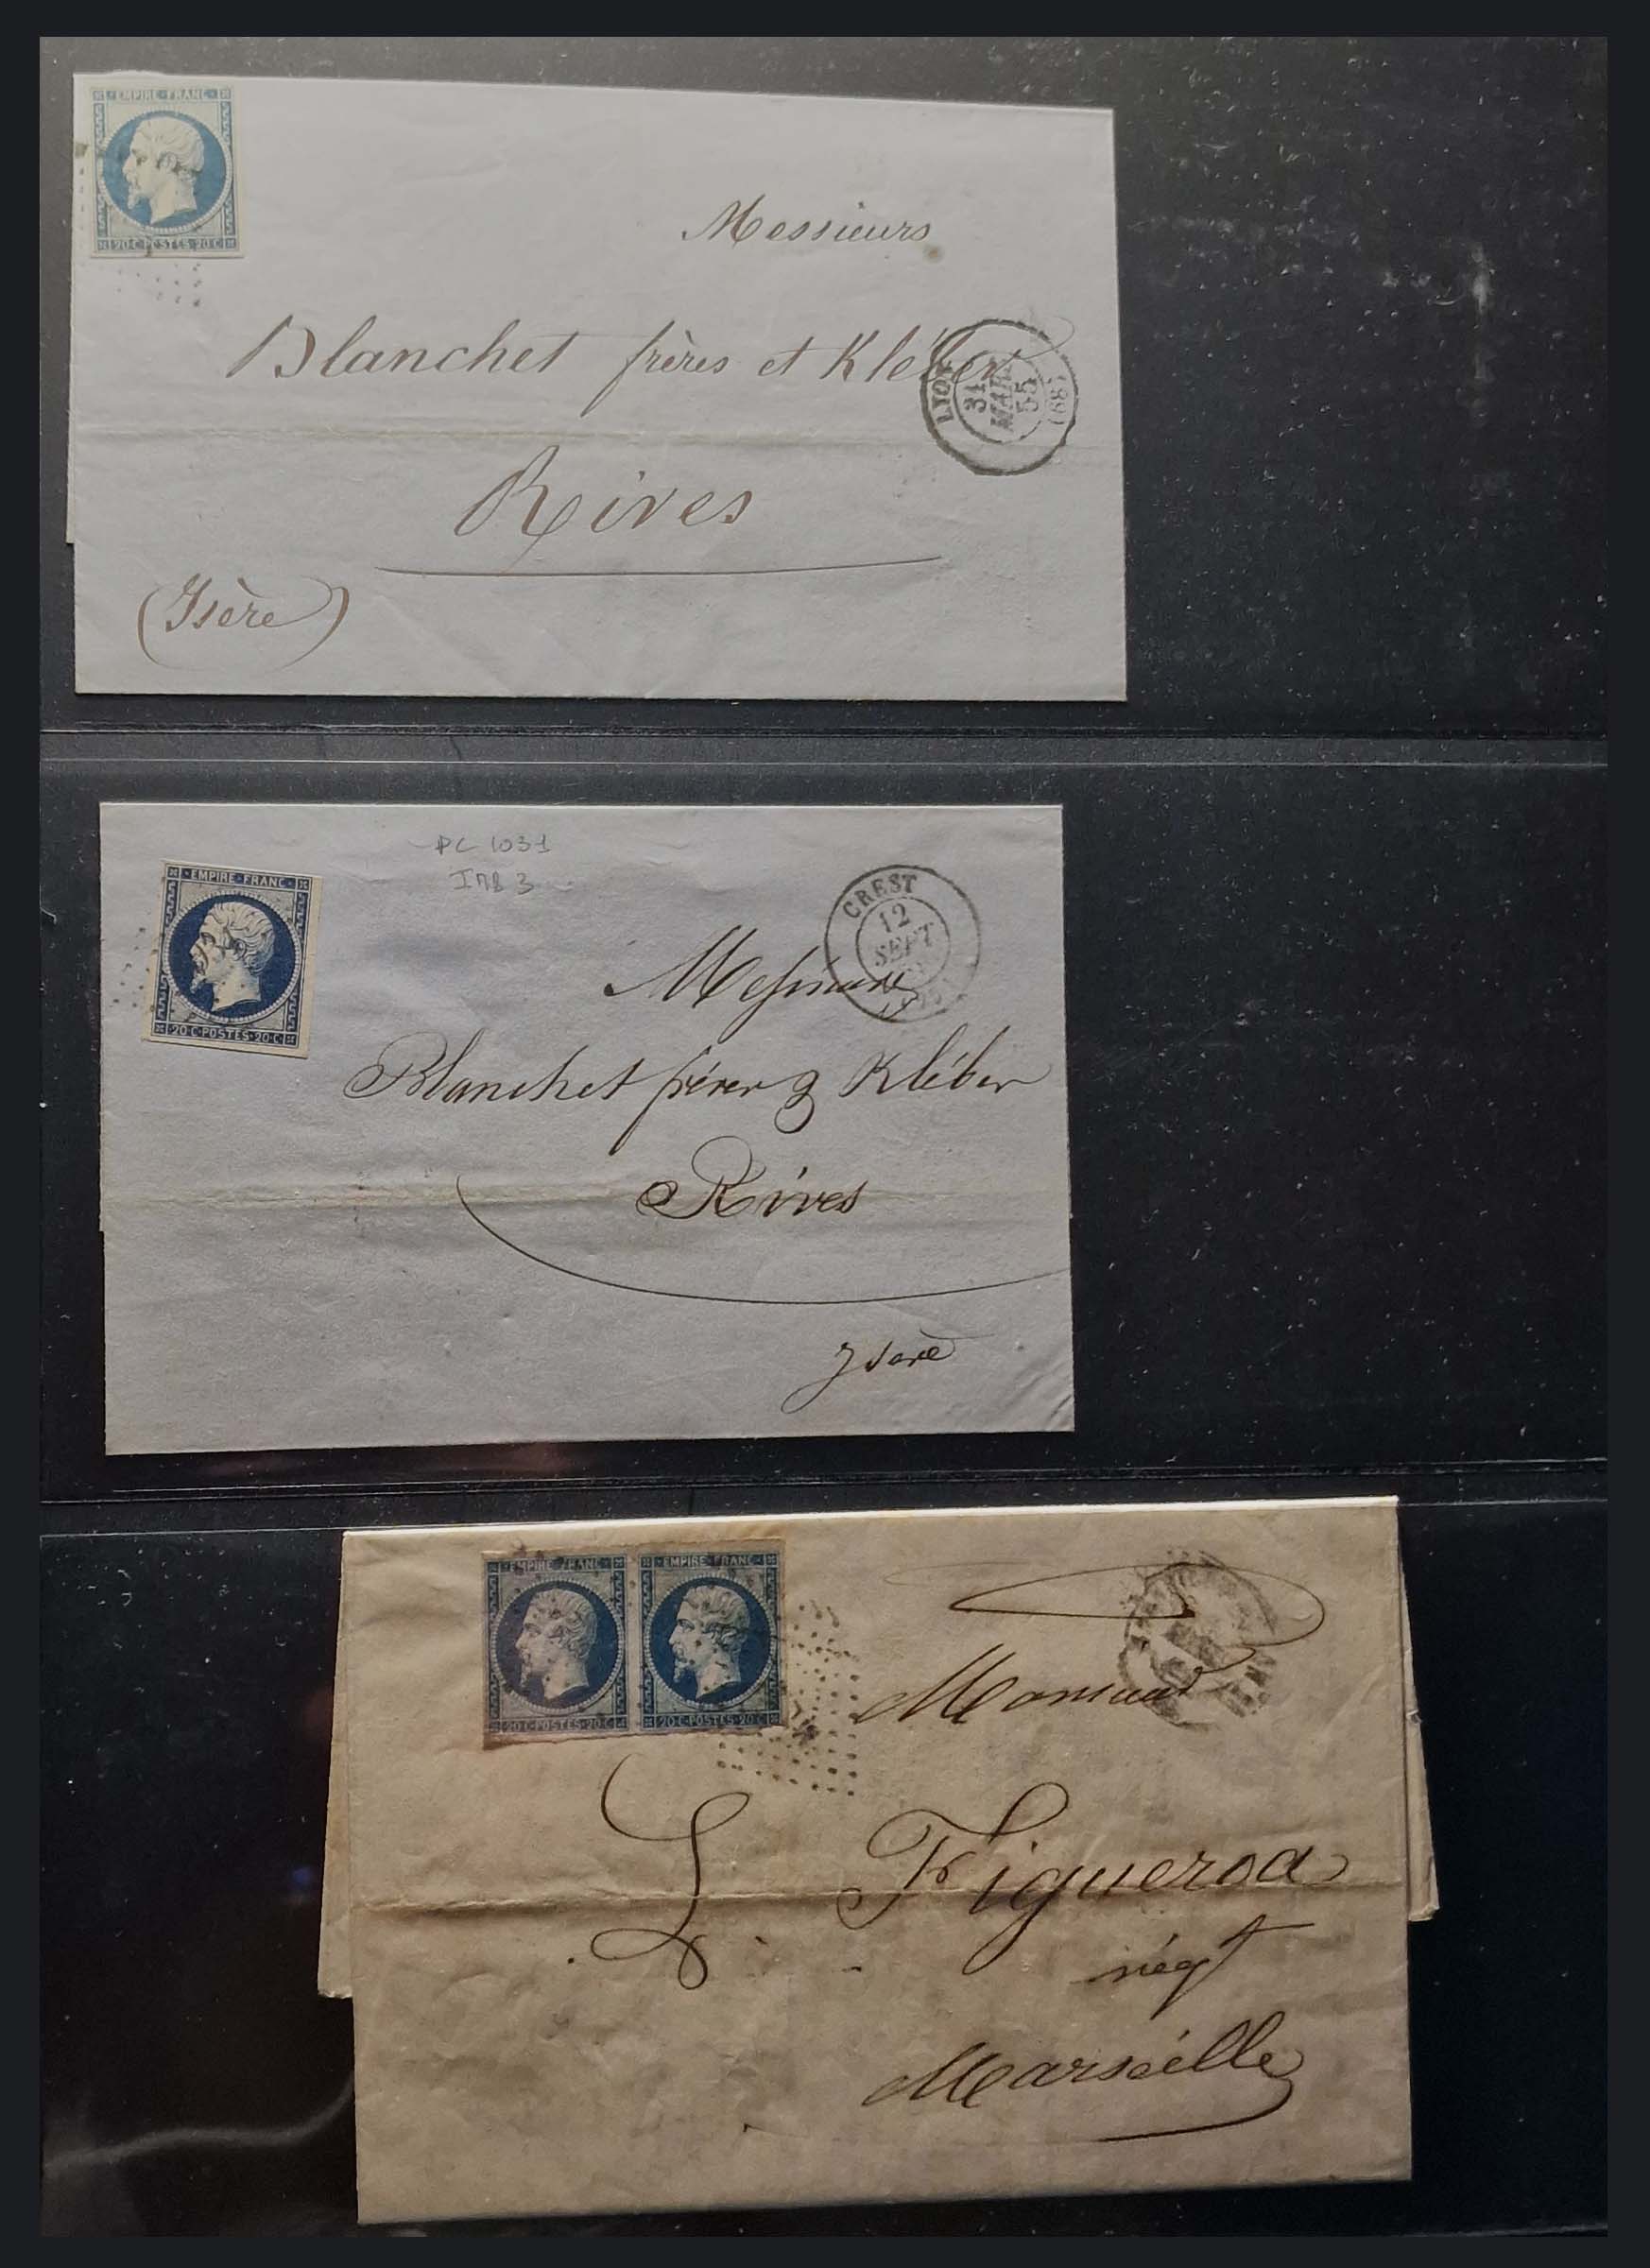 EMPIRE FRANC
20 C POSTES 20 C
Messieurs
Blanchet frères et Kléber
LYON
31
MARS
55
(68)
Rives
(Isère)
PC 1031
EMPIRE FRANC
CREST
12
SEPT
20 C POSTES 20 C
Messieurs
Blanchet frères & Kléber
Rives
Isère
EMPIRE FRANC EMPIRE FRANC
20 C POSTES 20 C 20 C POSTES 20 C
Monsieur
L. Figueroa
négt
Marseille